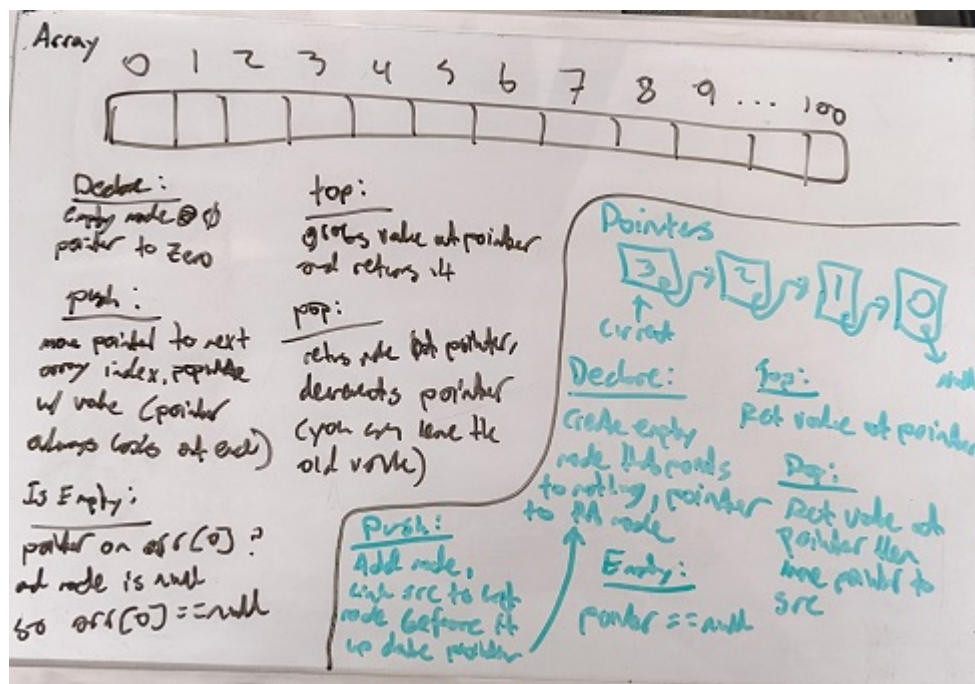 Array
0 1 2 3 4 5 6 7 8 9 ... 100
Declare:
empty node @ 0
pointer to zero
push:
move pointed to next
array index, populate
w/ value (pointer
always looks at end)
Is Empty:
pointer on arr[0] ?
and node is null
so arr[0] == null
top:
grabs value at pointer
and returns it
pop:
returns node pointer,
decrements pointer
(you can leave the
old value)
Pointers
3 2 1 0
Current
null
Declare:
Create empty
node that points
to nothing, pointer
to node
Empty:
pointer == null
Top:
Ret value at pointer
Pop:
Ret value at
pointer then
move pointer to
src
Push:
Add node,
link src to
node before it
update pointer